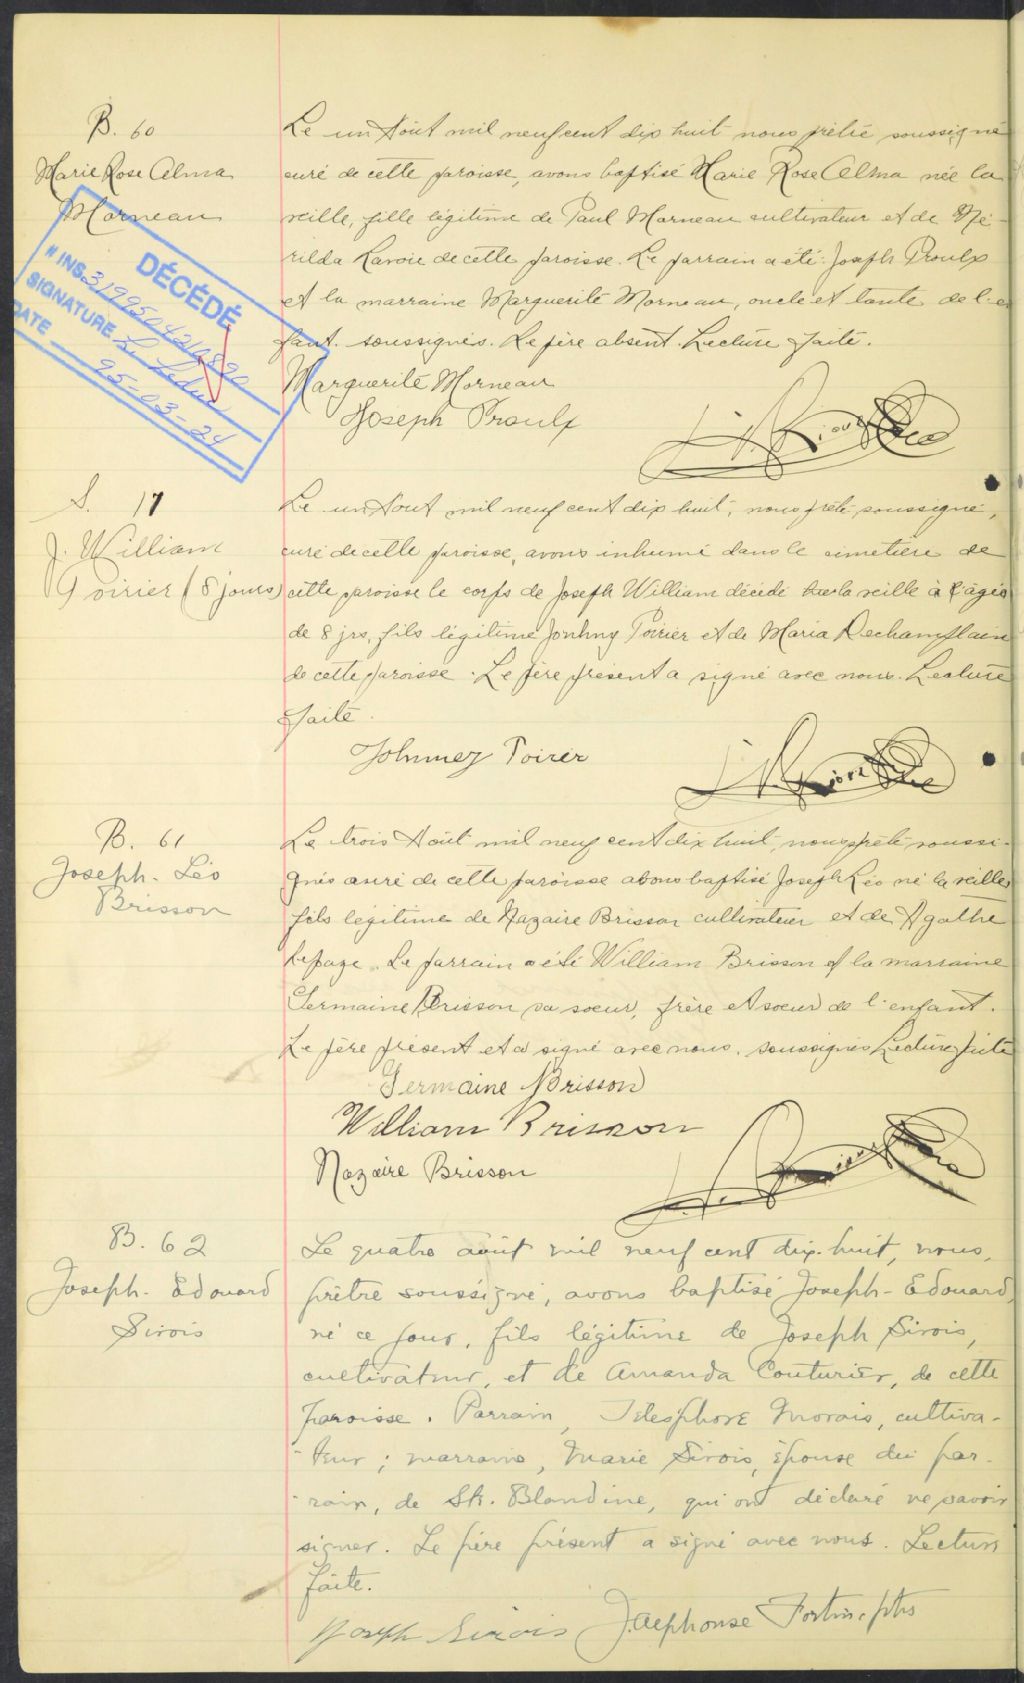 B. 60
Marie Rose Alma
Morneau
DÉCÉDÉ
# INS.
SIGNATURE
DATE
95-03-24
Le un Août mil neuf cent dix huit nous prêtre soussigné
curé de cette paroisse, avons baptisé Marie Rose Alma née la
veille, fille légitime de Paul Morneau cultivateur et de Mé-
rilda Lavoie de cette paroisse. Le parrain a été Joseph Proulx
et la marraine Marguerite Morneau, oncle et tante de l'en
fant. soussignés. Le père absent. Lecture faite.
Marguerite Morneau
Joseph Proulx
S. 17
J. William
Poirier (8 jours)
Le un Août mil neuf cent dix huit, nous prêtre soussigné,
curé de cette paroisse, avons inhumé dans le cimetière de
cette paroisse le corps de Joseph William décédé la veille à l'âge
de 8 jrs, fils légitime Jonhny Poirier et de Maria Dechamplain
de cette paroisse. Le père présent a signé avec nous. Lecture
faite.
Johnney Poirer
B. 61
Joseph-Léo
Brisson
Le trois Août mil neuf cent dix huit, nous prêtre soussi-
gnés curé de cette paroisse avons baptisé Joseph Léo né la veille
fils légitime de Nazaire Brisson cultivateur et de Agathe
Lepage. Le parrain a été William Brisson et la marraine
Germaine Brisson sa soeur, frère et soeur de l'enfant.
Le père présent et a signé avec nous. soussignés Lecture faite
Germaine Brisson
William Brisson
Nazaire Brisson
B. 62
Joseph-Edouard
Sirois
Le quatre août mil neuf cent dix-huit, nous,
prêtre soussigné, avons baptisé Joseph-Edouard,
né ce jour, fils légitime de Joseph Sirois,
cultivateur, et de Amanda Couturier, de cette
paroisse. Parrain, Télesphore Morais, cultiva-
teur; marraine, Marie Sirois, épouse du par-
rain, de Ste. Blandine, qui ont déclaré ne savoir
signer. Le père présent a signé avec nous. Lecture
faite.
Joseph Sirois J. Alphonse Fortin, ptre